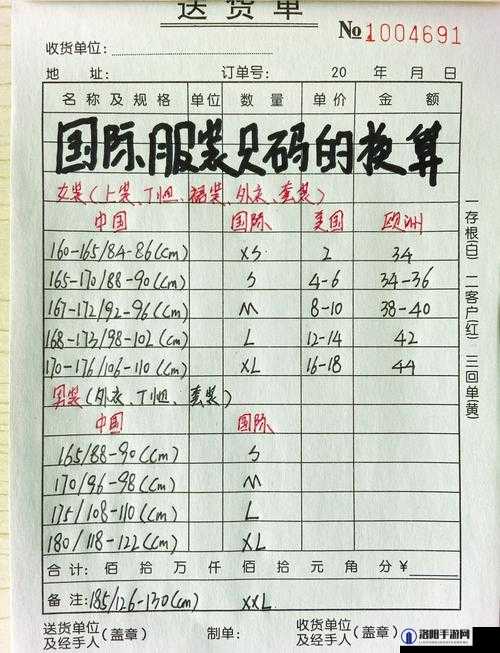 送货单
№1004691
收货单位:
地 址: 订单号: 20 年 月 日
名称及规格 单位 数量 单价 金额
国际服装尺码的换算
女装(上装、T恤、裙装、外衣、套装)
中国 国际 美国 欧洲
160-165/84-86(cm) XS 2 34
165-170/88-90(cm) S 4-6 34-36
167-172/92-96(cm) M 8-10 38-40
168-173/98-102(cm) L 12-14 42
170-176/106-110(cm) XL 16-18 44
男装(外衣、T恤、套装)
中国 国际
165/88-90(cm) S
170/96-98(cm) M
175/108-110(cm) L
180/118-122(cm) XL
合计: 佰 拾 万 仟 佰 拾 元 角 分 ¥
备注:185/126-130(cm) XXL
送货单位及经手人(盖章) 制单: 收货单位及经手人(盖章)
一存根(白) 二客户红) 三回单(黄)
洛阳手游网